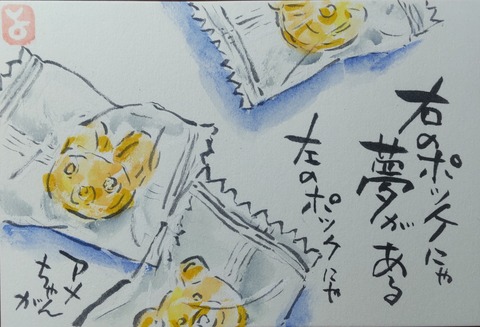 右のポッケにゃ
夢がある
左のポッケにゃ
アメ
ちゃんが